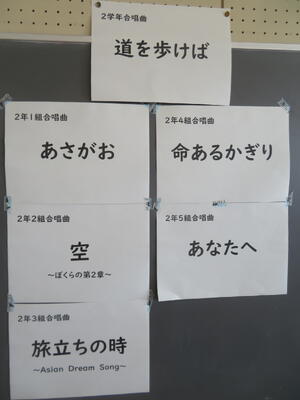 2学年合唱曲
道を歩けば
2年1組合唱曲
あさがお
2年2組合唱曲
空
～ぼくらの第2章～
2年3組合唱曲
旅立ちの時
～Asian Dream Song～
2年4組合唱曲
命あるかぎり
2年5組合唱曲
あなたへ